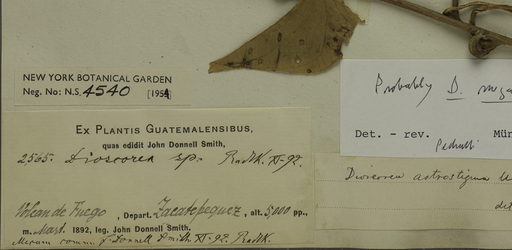 NEW YORK BOTANICAL GARDEN
Neg. No: N.S. 4540 [1954]
EX PLANTIS GUATEMALENSIBUS,
quas edidit John Donnell Smith,
2565. Dioscorea sp. Radlk. XI-92.
Volcan de Fuego, Depart. Zacatepequez, alt. 5,000 pp.,
m. Mart. 1892, leg. John Donnell Smith.
Donnell Smith XI-92. Radlk.
Probably D.
Det. - rev.
Mün
Dioscorea
det